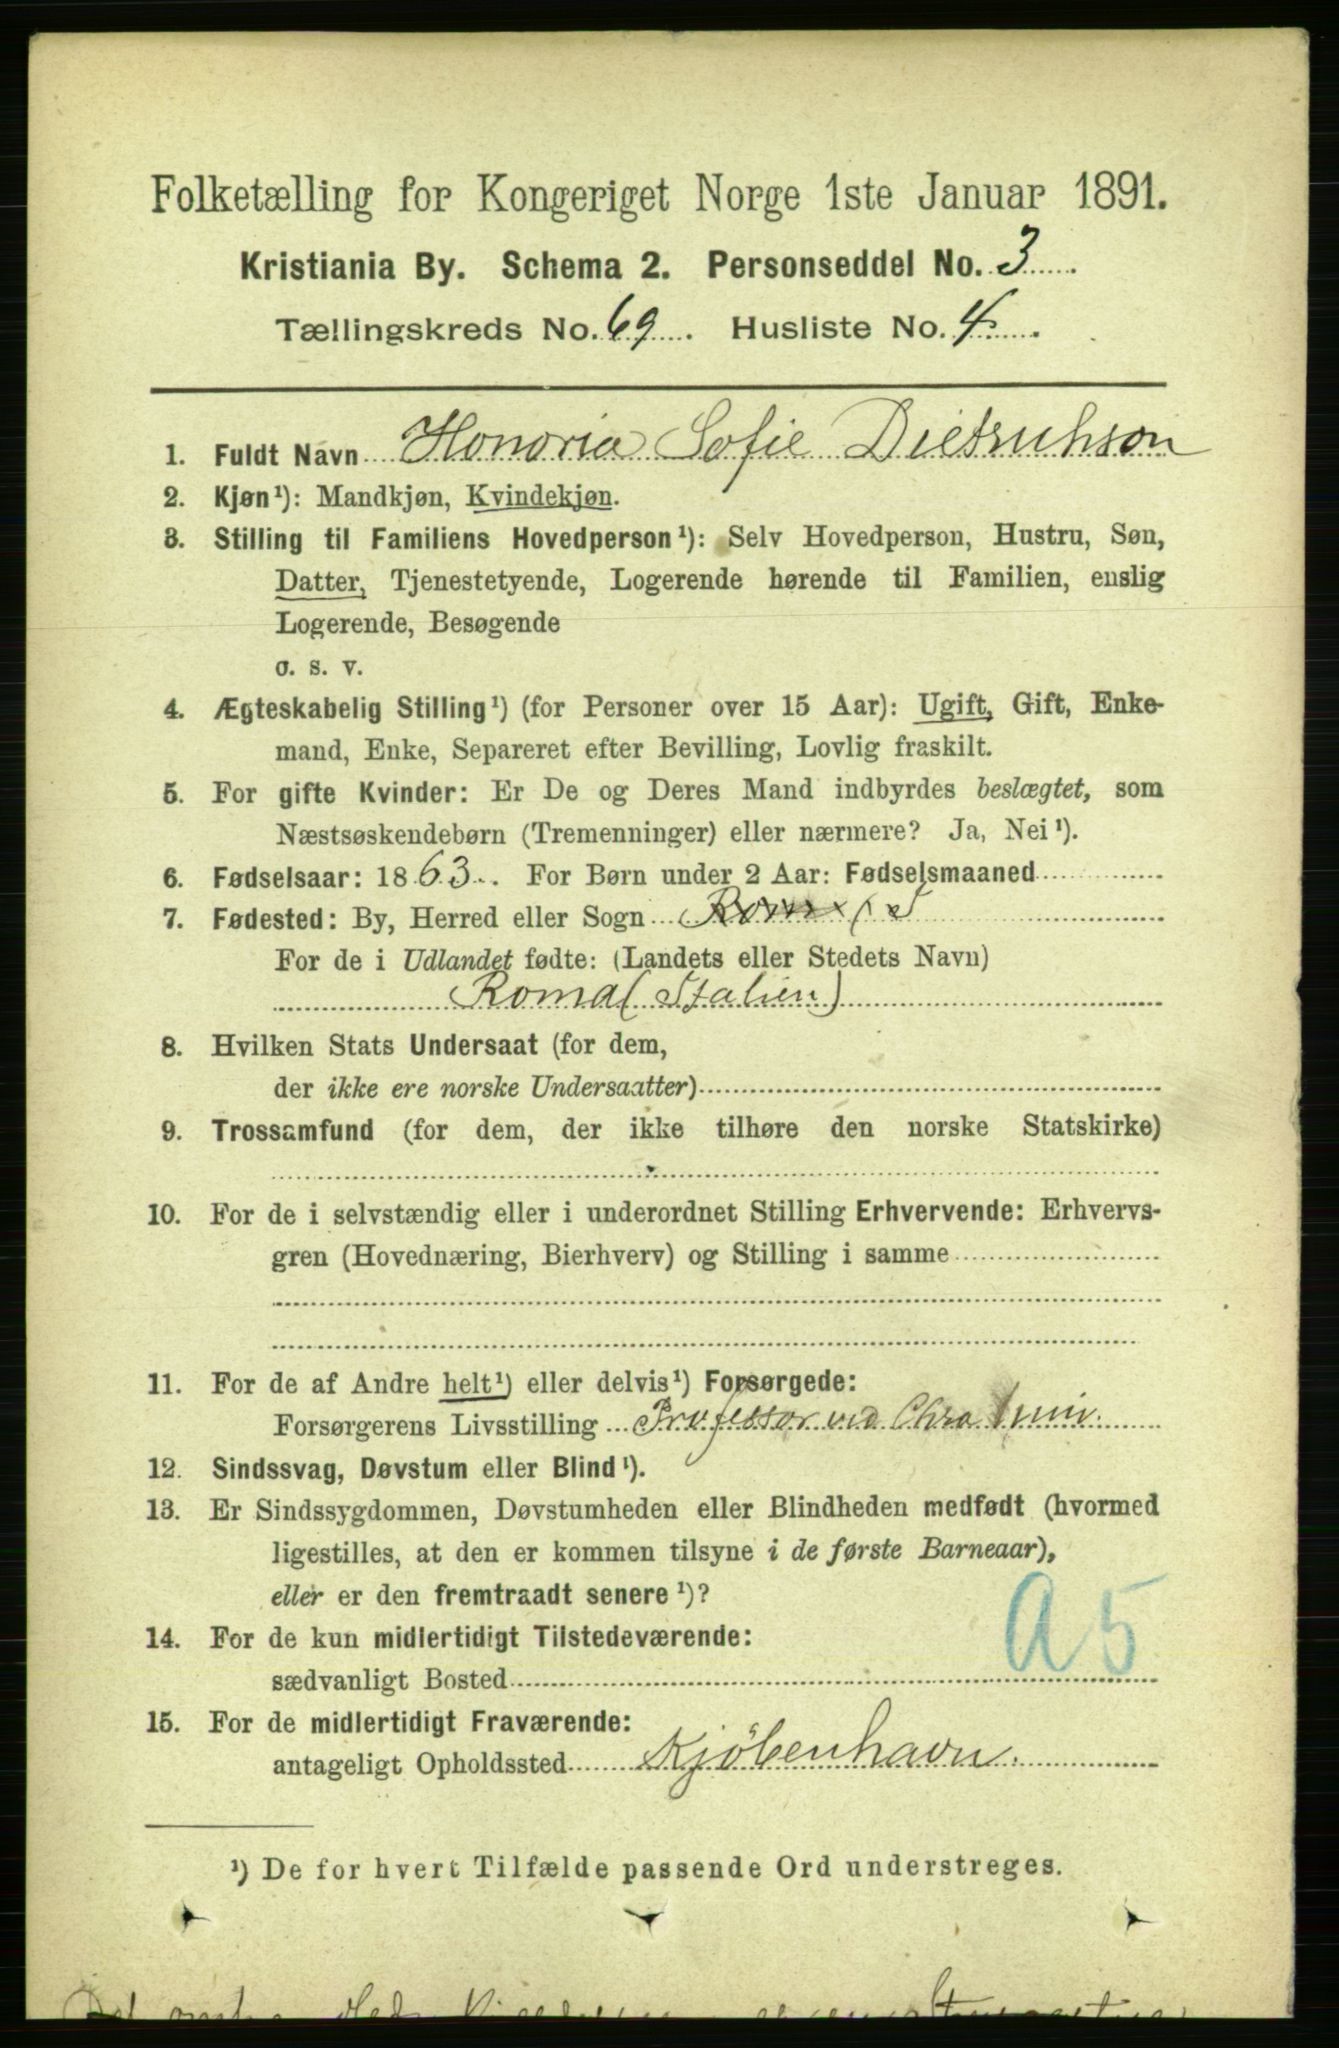 Folketælling for Kongeriget Norge 1ste Januar 1891.
Kristiania By. Schema 2. Personseddel No. 3
Tællingskreds No. 69. Husliste No. 4.
1. Fuldt Navn Honoria Sofie Dietrichson
2. Kjøn¹): Mandkjøn, Kvindekjøn.
3. Stilling til Familiens Hovedperson¹): Selv Hovedperson, Hustru, Søn,
Datter, Tjenestetyende, Logerende hørende til Familien, enslig
Logerende, Besøgende
o. s. v.
4. Ægteskabelig Stilling¹) (for Personer over 15 Aar): Ugift, Gift, Enke-
mand, Enke, Separeret efter Bevilling, Lovlig fraskilt.
5. For gifte Kvinder: Er De og Deres Mand indbyrdes beslægtet, som
Næstsøskendebørn (Tremenninger) eller nærmere? Ja, Nei¹).
6. Fødselsaar: 1863. For Børn under 2 Aar: Fødselsmaaned
7. Fødested: By, Herred eller Sogn Rom
For de i Udlandet fødte: (Landets eller Stedets Navn)
Roma (Italien)
8. Hvilken Stats Undersaat (for dem,
der ikke ere norske Undersaatter)
9. Trossamfund (for dem, der ikke tilhøre den norske Statskirke)
10. For de i selvstændig eller i underordnet Stilling Erhvervende: Erhvervs-
gren (Hovednæring, Bierhverv) og Stilling i samme
11. For de af Andre helt¹) eller delvis¹) Forsørgede:
Forsørgerens Livsstilling Professor ved Chra Univ.
12. Sindssvag, Døvstum eller Blind¹).
13. Er Sindssygdommen, Døvstumheden eller Blindheden medfødt (hvormed
ligestilles, at den er kommen tilsyne i de første Barneaar),
eller er den fremtraadt senere¹)?
A5
14. For de kun midlertidigt Tilstedeværende:
sædvanligt Bosted
15. For de midlertidigt Fraværende:
antageligt Opholdssted Kjöbenhavn.
¹) De for hvert Tilfælde passende Ord understreges.